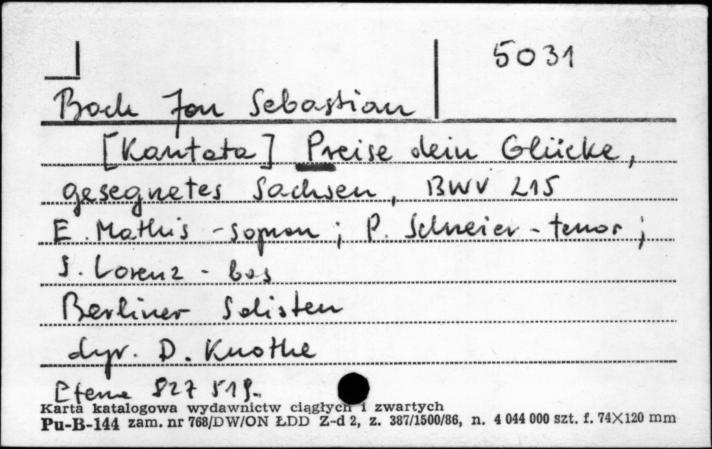 5031
Bach Jan Sebastian
[Kantata] Preise dein Glücke,
gesegnetes Sachsen, BWV 215
E. Mathis - sopran; P. Schreier - tenor;
S. Lorenz - bas
Berliner Solisten
dyr. D. Knothe
Eterna 827 519.
Karta katalogowa wydawnictw ciągłych i zwartych
Pu-B-144 zam. nr 768/DW/ON ŁDD Z-d 2, z. 387/1500/86, n. 4 044 000 szt. f. 74×120 mm